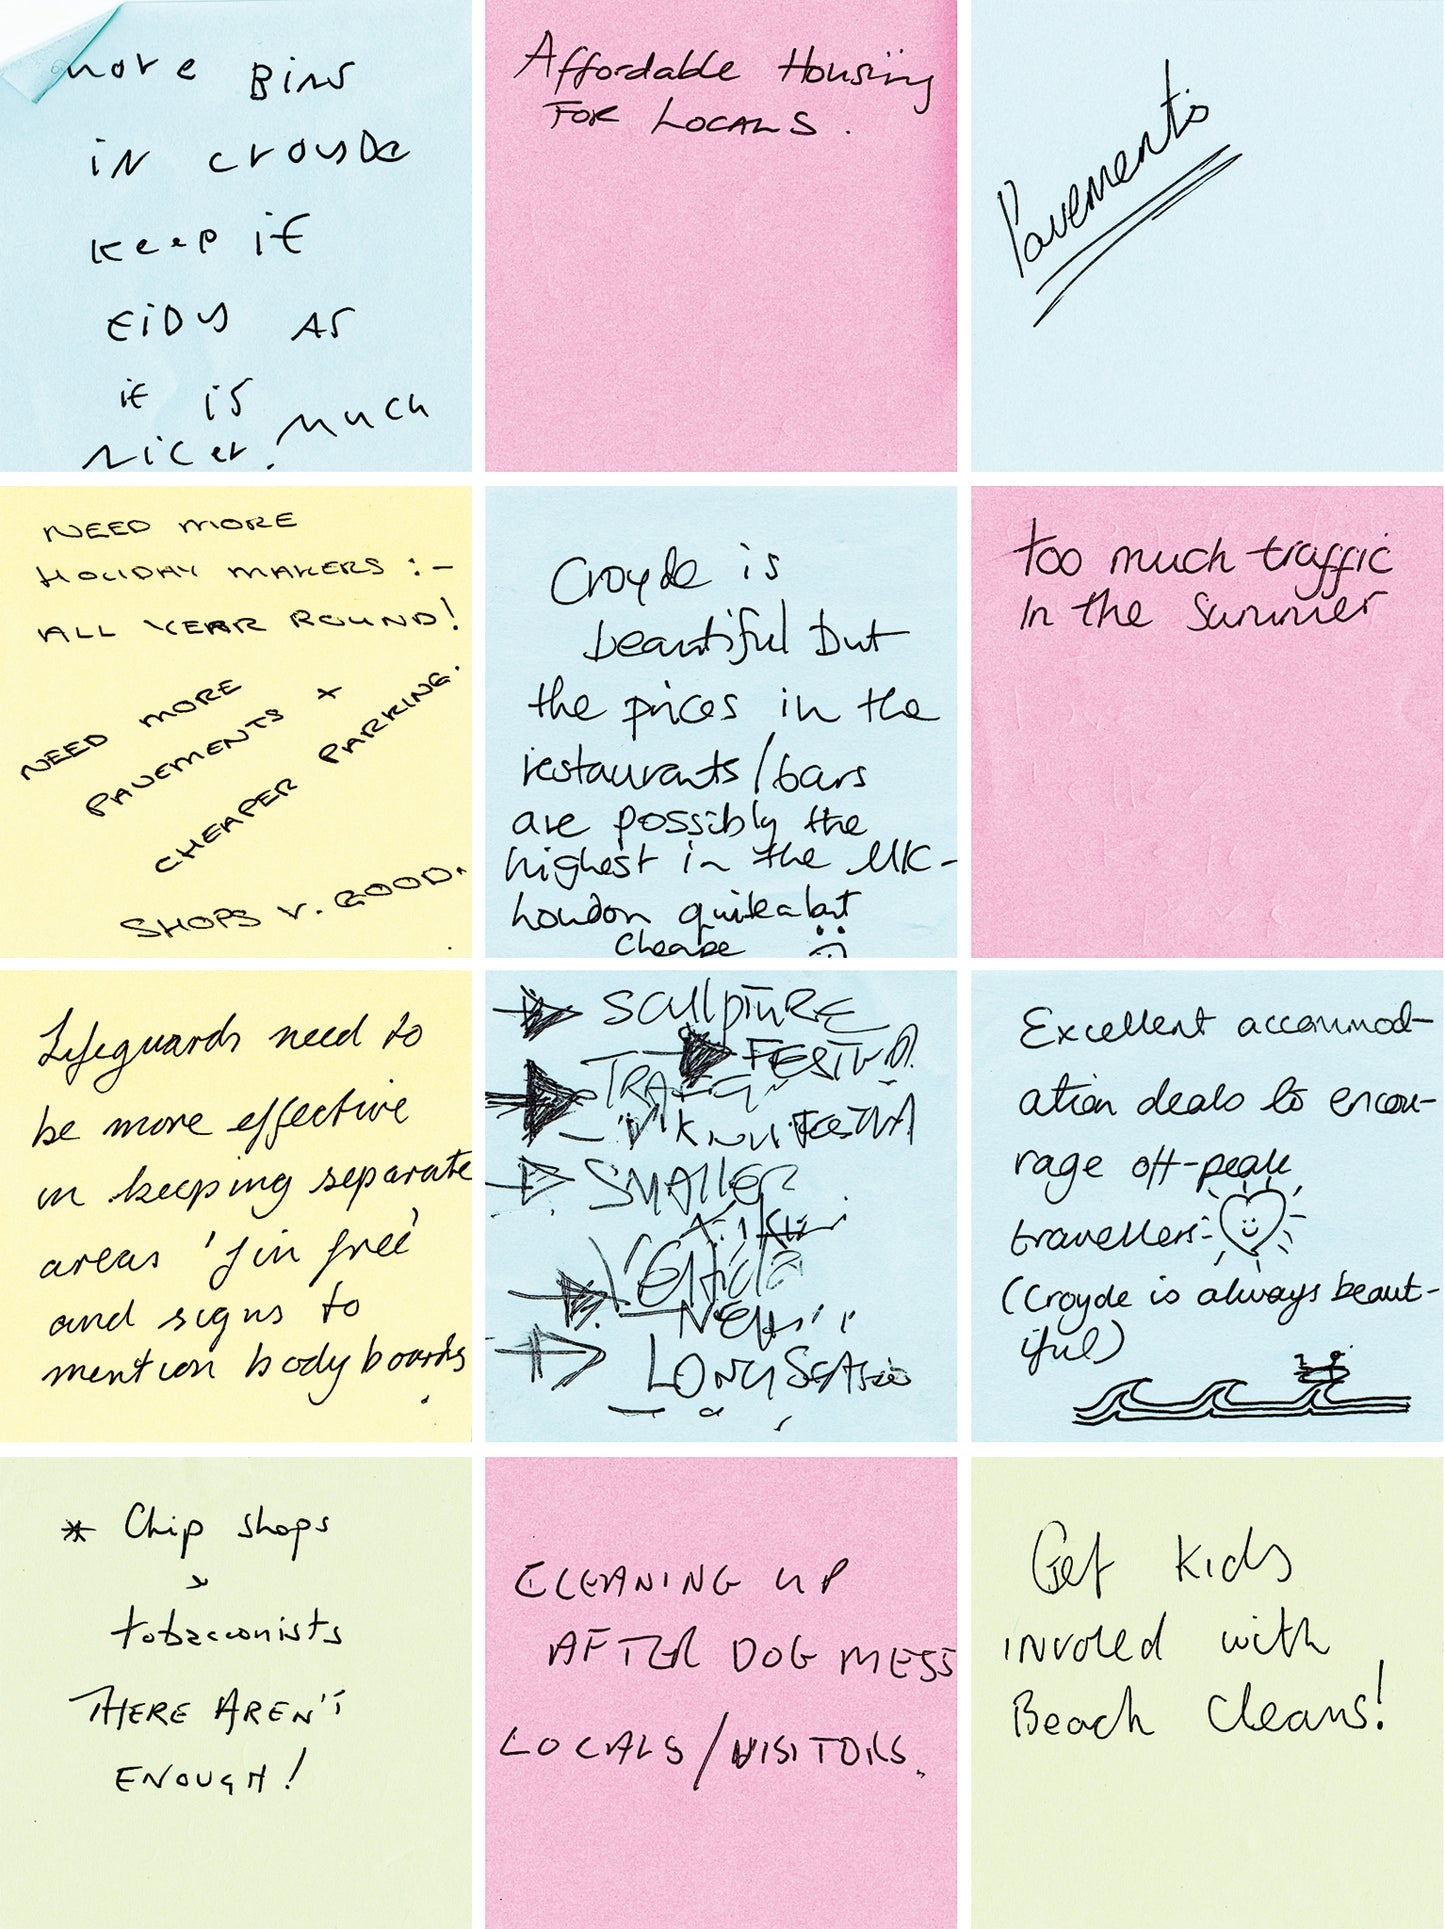 more Bins
in croyde
keep it
tidy as
it is much
nicer.
Affordable Housing
FOR LOCALS.
Pavements
NEED MORE
HOLIDAY MAKERS :-
ALL YEAR ROUND!
NEED MORE
PAVEMENTS +
CHEAPER PARKING.
SHOPS V. GOOD.
Croyde is
beautiful but
the prices in the
restaurants/bars
are possibly the
highest in the UK-
London quite a lot
Cheape
too much traffic
In the Summer
Lifeguards need to
be more effective
in keeping separate
areas 'fin free'
and signs to
mention body boards.
SCULPTURE
FESTIVAL
SMALLER
Excellent accommod-
ation deals to encou-
rage off-peak
travellers-
(Croyde is always beaut-
iful)
* Chip shops
tobacconists
THERE AREN'T
ENOUGH!
CLEANING UP
AFTER DOG MESS
LOCALS/VISITORS.
Get kids
involed with
Beach cleans!